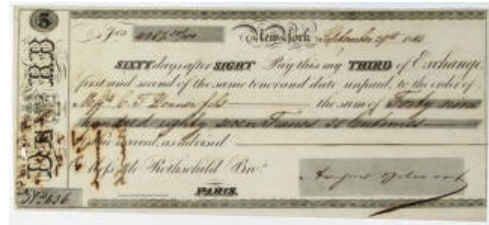 3
For 4987 50/100 New York, September 29th 18
SIXTY days after SIGHT Pay this my THIRD of Exchange
first and second of the same tenor and date unpaid, to the order of
the sum of Forty nine
hundred eighty seven Francs 50 Centimes
value received, as advised
Rothschild Bro.s
PARIS.
No 636